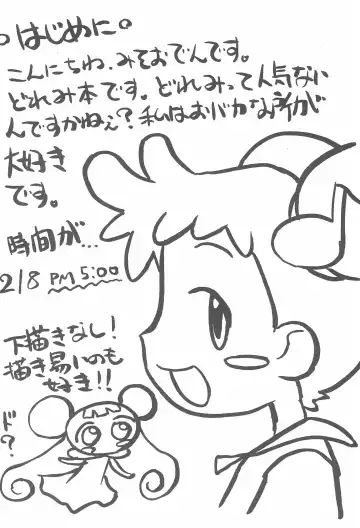 。はじめに。
こんにちわ、みそおでんです。
どれみ本です。どれみって人気ない
んですかねぇ？私はおバカな所が
大好き
です。
時間が…
2/8 PM5:00
下描きなし！
描き易いのも
好き!!
ド？